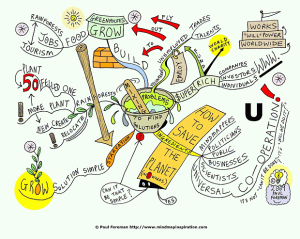 RAINFORESTS
JOBS
TOURISM
GREENHOUSES
GROW
FOOD
PLY
OUT
BUILD
TRADES
TALENTS
WORLD
WORKS
"WILL"POWER
WORLDWIDE
WWW.
COMPANIES
INVESTORS
INDIVIDUALS
SUPER RICH
PLANT
50
FELLED ONE
MORE PLANT
NEW CREATE
RELOCATE
RAINFORESTS
PROBLEMS
TO FIND
SOLUTIONS
HOW TO
SAVE
THE
PLANET
MINDMAPPERS
POLITICIANS
PUBLIC
BUSINESSES
SCIENTISTS
U!
CO-OPERATION!
GROW
SOLUTION SIMPLE
CAN IT
BE THAT
SIMPLE?
YES!
2009
PAUL
FOREMAN
© Paul Foreman http://www.mindmapinspiration.com